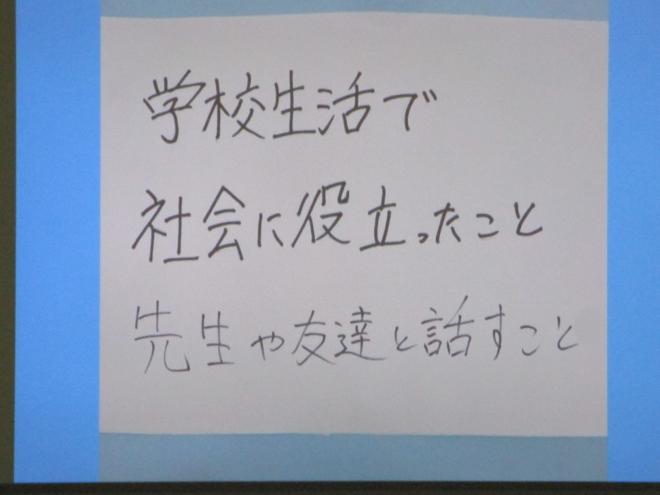 学校生活で
社会に役立ったこと
先生や友達と話すこと